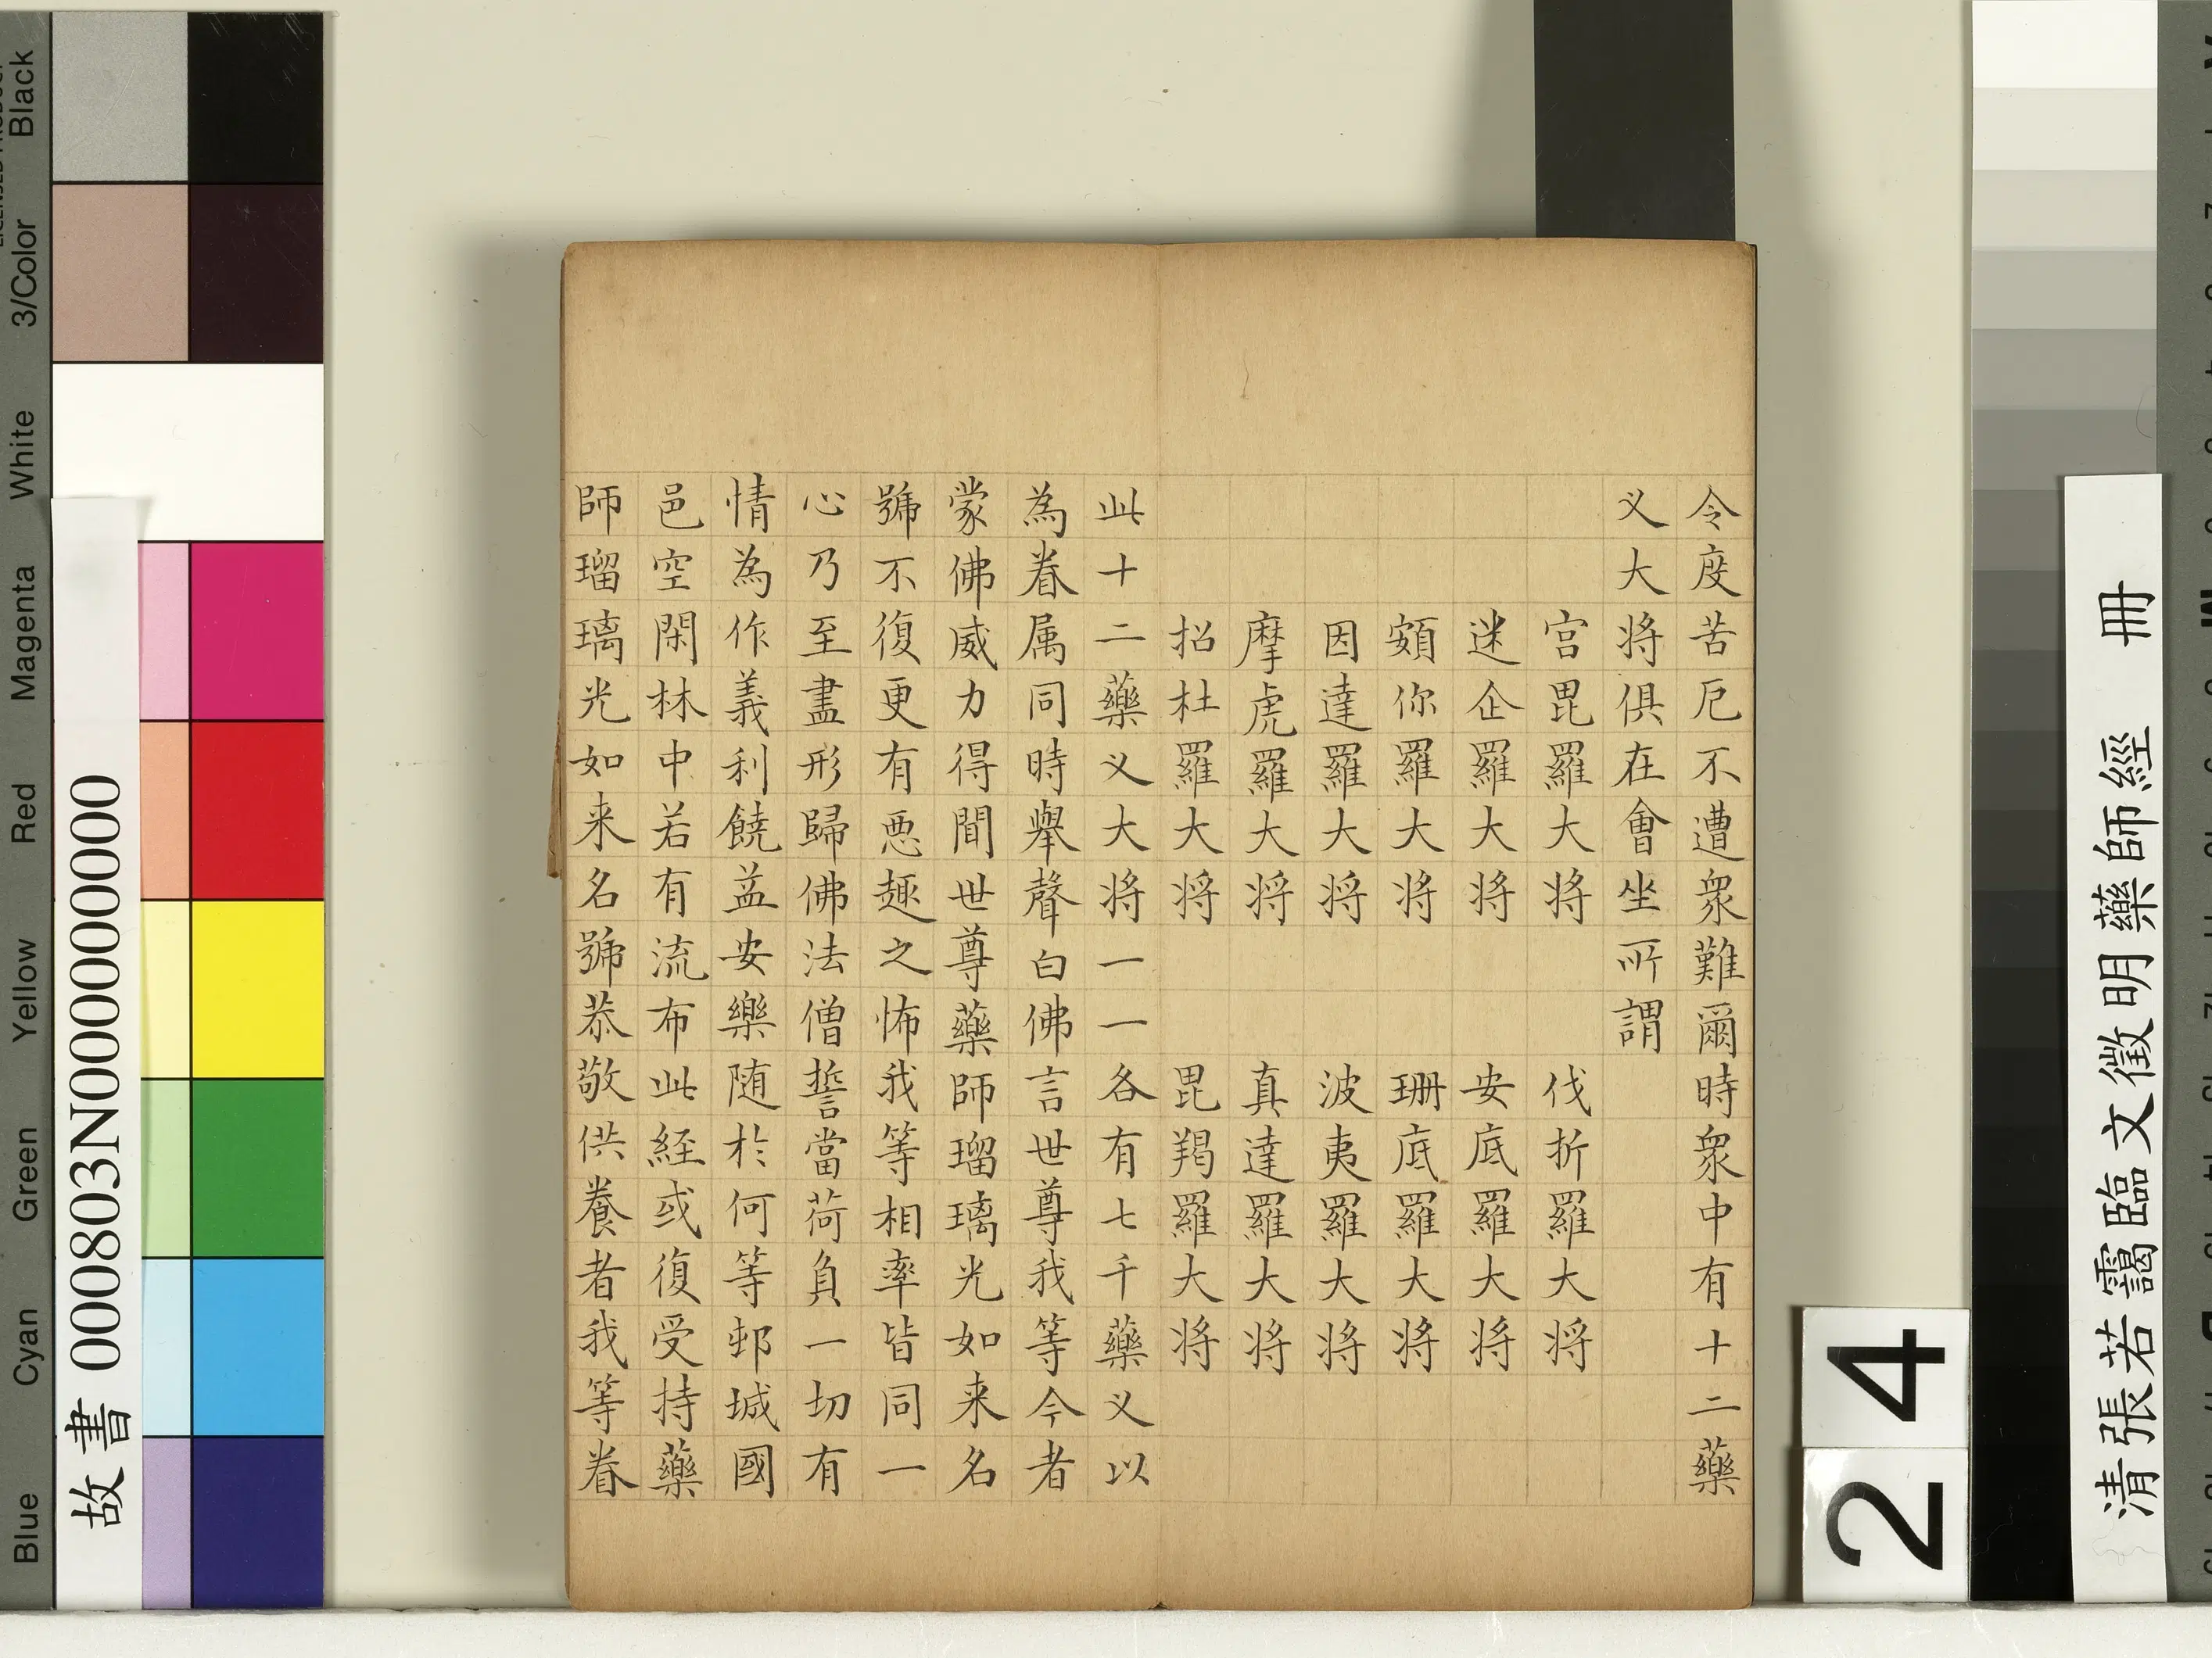 令度苦厄不遭衆難爾時衆中有十二藥
义大将俱在會坐所謂
宮毘羅大将 伐折羅大将
迷企羅大将 安底羅大将
頞你羅大将 珊底羅大将
因達羅大将 波夷羅大将
摩虎羅大将 真達羅大将
招杜羅大将 毘羯羅大将
此十二藥义大将一一各有七千藥义以
為眷属同時舉聲白佛言世尊我等今者
蒙佛威力得聞世尊藥師瑠璃光如来名
號不復更有惡趣之怖我等相率皆同一
心乃至盡形歸佛法僧誓當荷負一切有
情為作義利饒益安樂随於何等邨城國
邑空閑林中若有流布此経或復受持藥
師瑠璃光如来名號恭敬供養者我等眷
清張若靄臨文徵明藥師經 冊
24
故書 000803N000000000
Blue Cyan Green Yellow Red Magenta White 3/Color Black